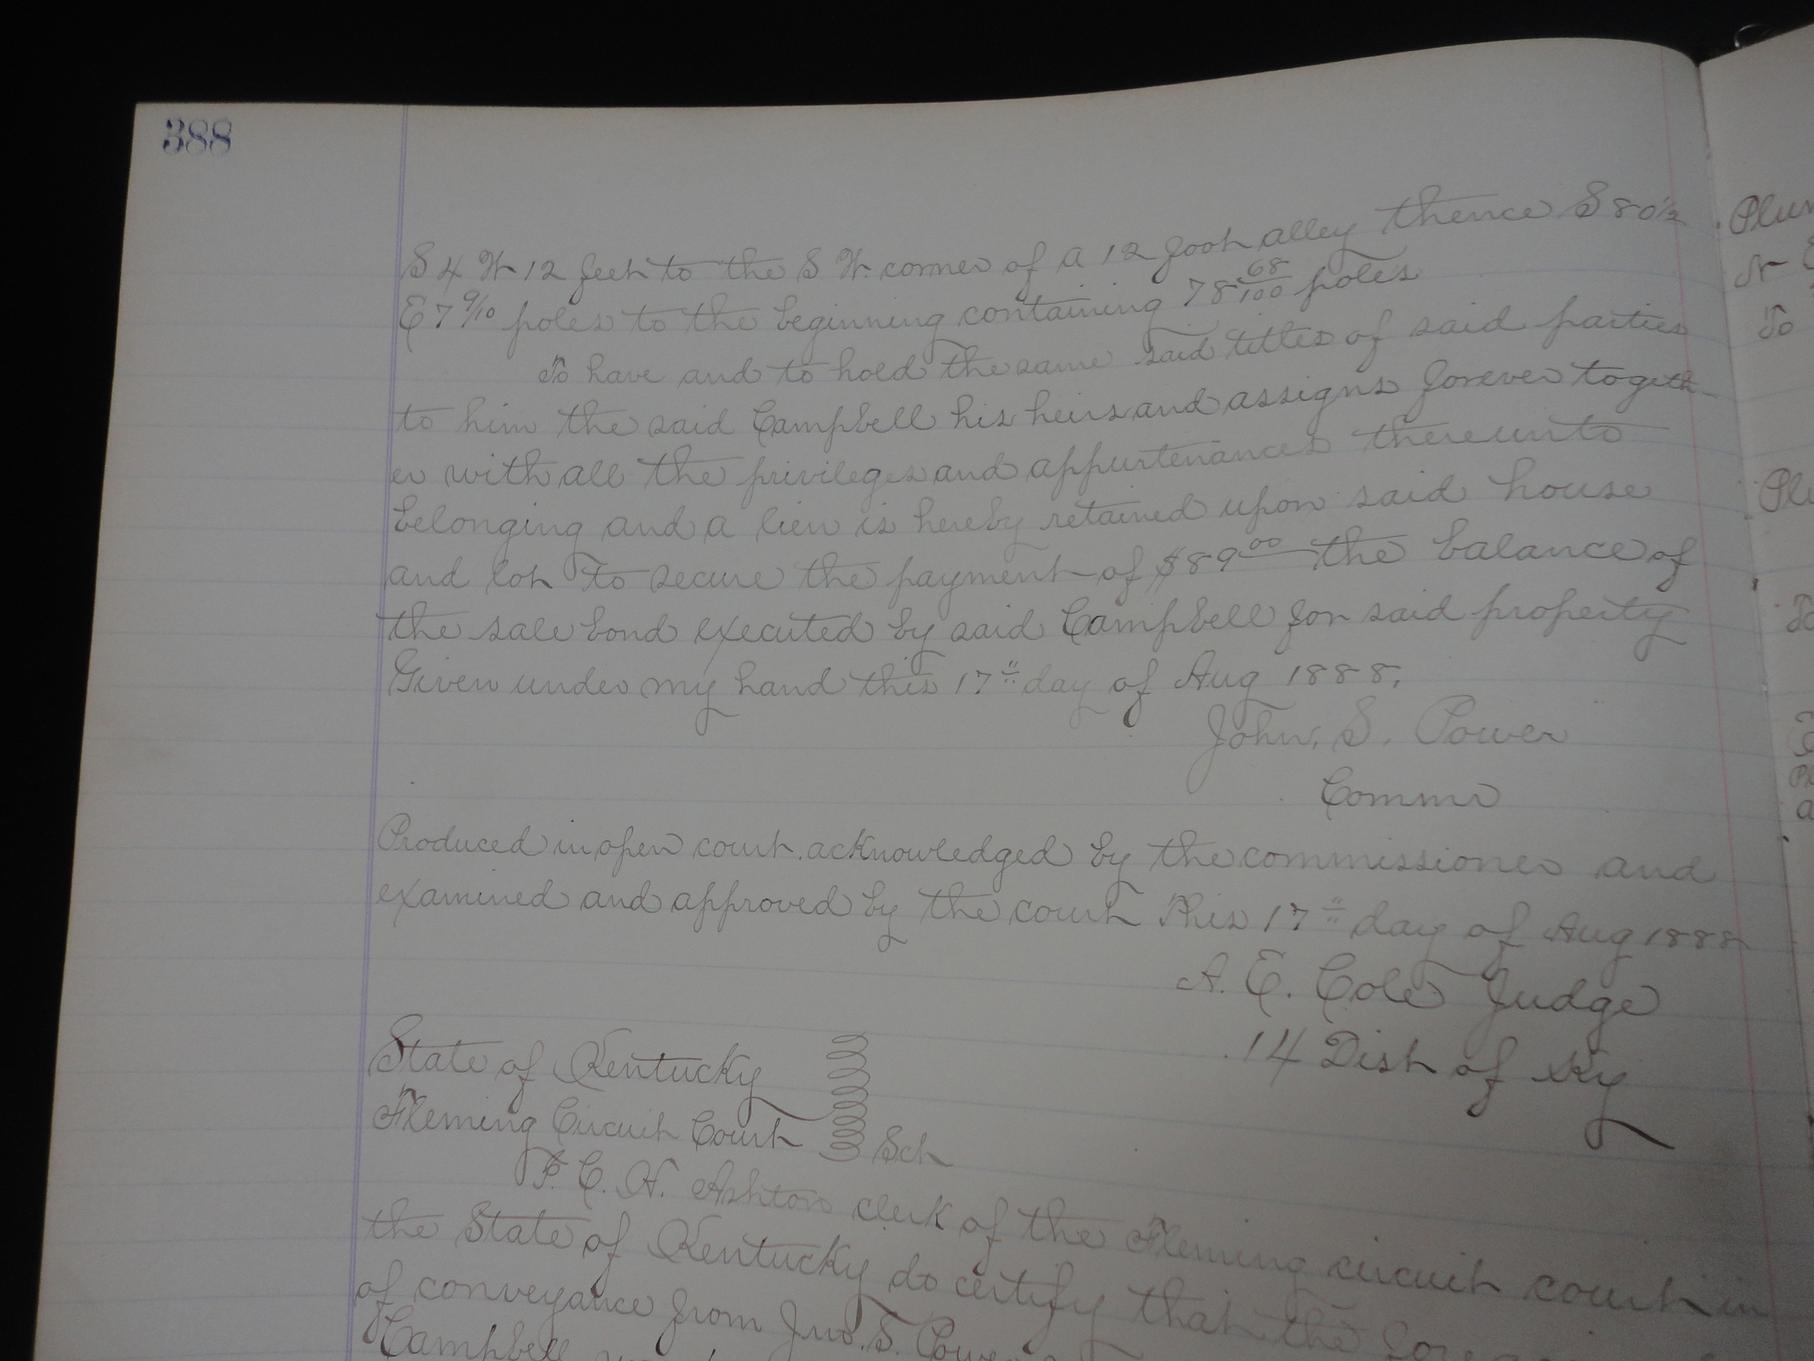 388
S 4 W 12 feet to the S W. corner of a 12 foot alley thence S 80½
E 7 9/10 poles to the beginning containing 78 68/100 poles
To have and to hold the same said titles of said parties
to him the said Campbell his heirs and assigns forever togeth-
er with all the privileges and appurtenances thereunto
belonging and a lien is hereby retained upon said house
and lot To secure the payment of $89 00 the balance of
the sale bond executed by said Campbell for said property
Given under my hand this 17" day of Aug 1888,
John. S. Power
Commr
Produced in open court. acknowledged by the commissioner and
examined and approved by the court This 17" day of Aug 1888
A. E. Cole Judge
14 Dist of Ky
State of Kentucky
Fleming Circuit Court Sct
C. N. Ashton clerk of the Fleming circuit court in
the State of Kentucky do certify that the
of conveyance from Jno. S. Power
Campbell
Plu
N
To
Pl